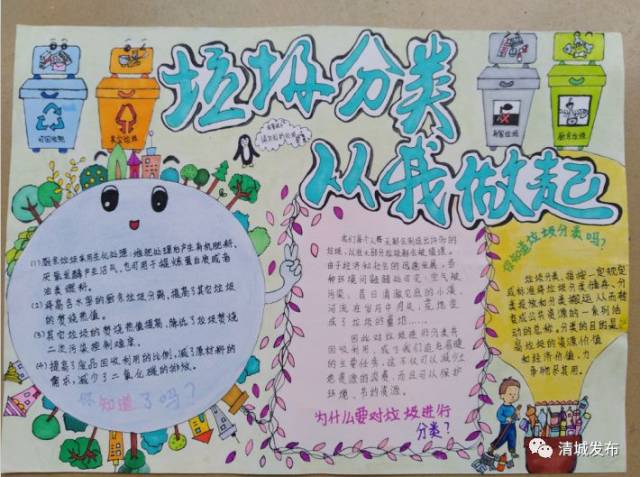 垃圾分类
从我做起
可回收物
其它垃圾
有害垃圾
厨余垃圾
(1)厨余垃圾采用生化处理:堆肥处理后产生有机肥料,
厌氧发酵产生沼气,也可用于提炼蛋白质或者
油类燃料。
(2)将高含水率的厨余垃圾分离,提高了其它垃圾
的焚烧热值。
(3)其它垃圾的焚烧热值提高,降低了垃圾焚烧
二次污染控制难度。
(4)提高了废品回收利用的比例,减少了原材料的
需求,减少了二氧化碳的排放。
你知道了吗?
我们每个人每天都会制造出许多的
垃圾,
由于经济和社会的迅速发展,各
种环境问题随处可见,空气被
污染,昔日清澈见底的小溪、
河流在岁月中问臭,荒地变
成了垃圾的墓地……
因此对垃圾进行分类并
回收利用,成了我们应急着
的主要任务,这不仅可以减少土
地资源的浪费,而且可以保护
环境、节约资源。
为什么要对垃圾进行
分类?
你知道垃圾分类吗?
垃圾分类,指按一定规定
或标准将垃圾分类储存、分
类投放和分类搬运,从而转
变成公共资源的一系列活
动的总称。分类的目的是提
高垃圾的资源价值
和经济价值,力
争物尽其用。
清城发布